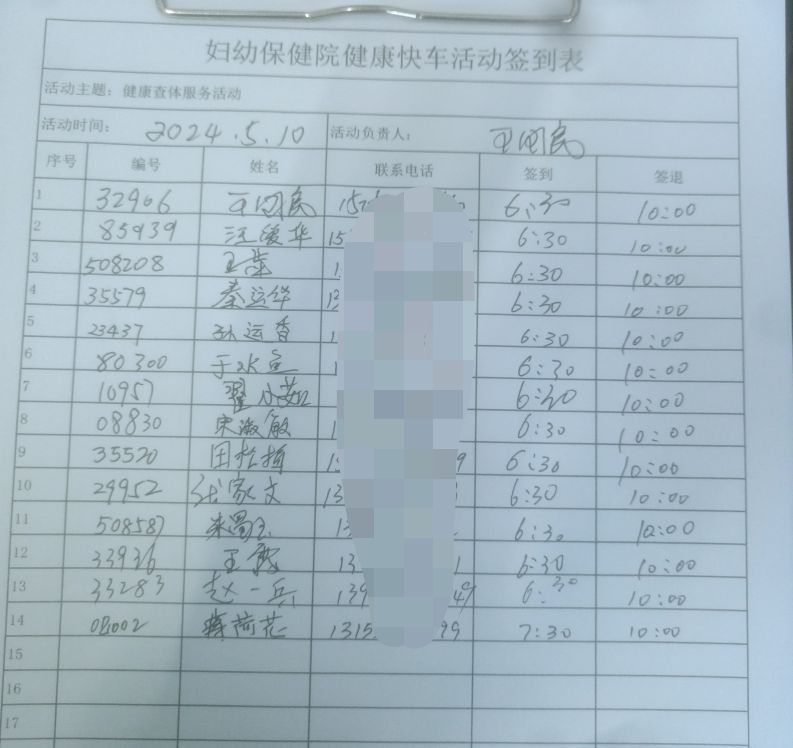 妇幼保健院健康快车活动签到表
活动主题：健康查体服务活动
活动时间： 2024.5.10 活动负责人： 王国民
序号 编号 姓名 联系电话 签到 签退
1 32906 王国民 6:30 10:00
2 85939 汪爱华 15 6:30 10:00
3 508208 1 6:30 10:00
4 35579 秦运华 6:30 10:00
5 23437 孙运香 1 6:30 10:00
6 80300 于水鱼 6:30 10:00
7 10957 翟小茹 6:30 10:00
8 08830 宋淑敏 1 6:30 10:00
9 35520 9 6:30 10:00
10 29952 家文 13 6:30 10:00
11 508587 13 6:30 10:00
12 33936 王 13 1 6:30 10:00
13 33283 赵一兵 139 49 6:30 10:00
14 蒋荷花 1315 99 7:30 10:00
15
16
17